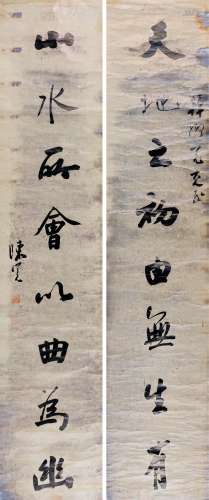 天地之初由無生有
山水所會以曲為幽